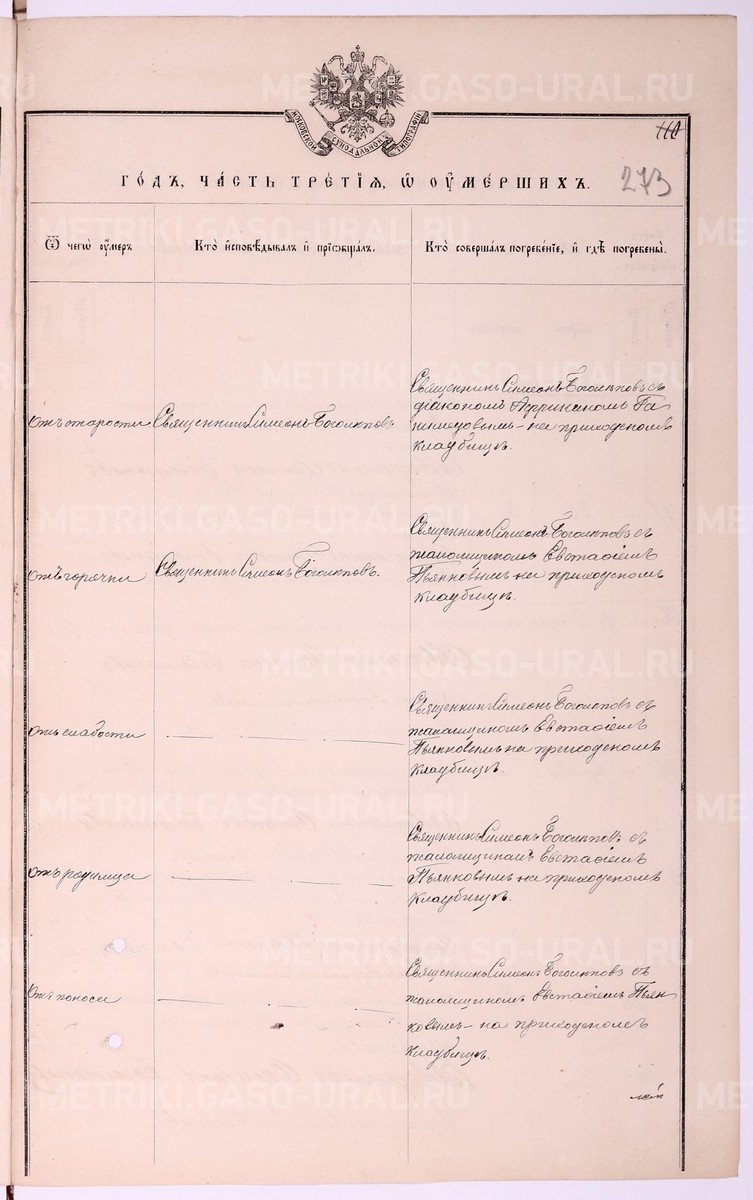 METRIKI.GASO-URAL.RU
МОСКОВСКОЙ СѶНОДАЛЬНОЙ ТИПОГРАФІИ
110
ГО́ДЪ, ЧА́СТЬ ТРЕ́ТІѦ, Ѡ҆ ОУ҆МЕ́РШИХЪ.
273
Ѿ чегѡ̀ оу҆́меръ
Кто̀ и҆сповѣ́дывалъ и҆ прїѡбща́лъ.
Кто̀ соверша́лъ погребе́нїе, и҆ гдѣ̀ погребены̀.
Отъ старости
Священникъ Симеонъ Боголѣповъ
Священникъ Симеонъ Боголѣповъ съ
діакономъ
на приходскомъ
кладбищѣ.
Отъ горячки
Священникъ Симеонъ Боголѣповъ.
Священникъ Симеонъ Боголѣповъ съ
псаломщикомъ Евстафіемъ
Пьянковымъ на приходскомъ
кладбищѣ.
Отъ слабости
Священникъ Симеонъ Боголѣповъ съ
псаломщикомъ Евстафіемъ
Пьянковымъ на приходскомъ
кладбищѣ.
Отъ родимца
Священникъ Симеонъ Боголѣповъ съ
псаломщикомъ Евстафіемъ
Пьянковымъ на приходскомъ
кладбищѣ.
Отъ поноса
Священникъ Симеонъ Боголѣповъ съ
псаломщикомъ Евстафіемъ Пьян-
ковымъ – на приходскомъ
кладбищѣ.